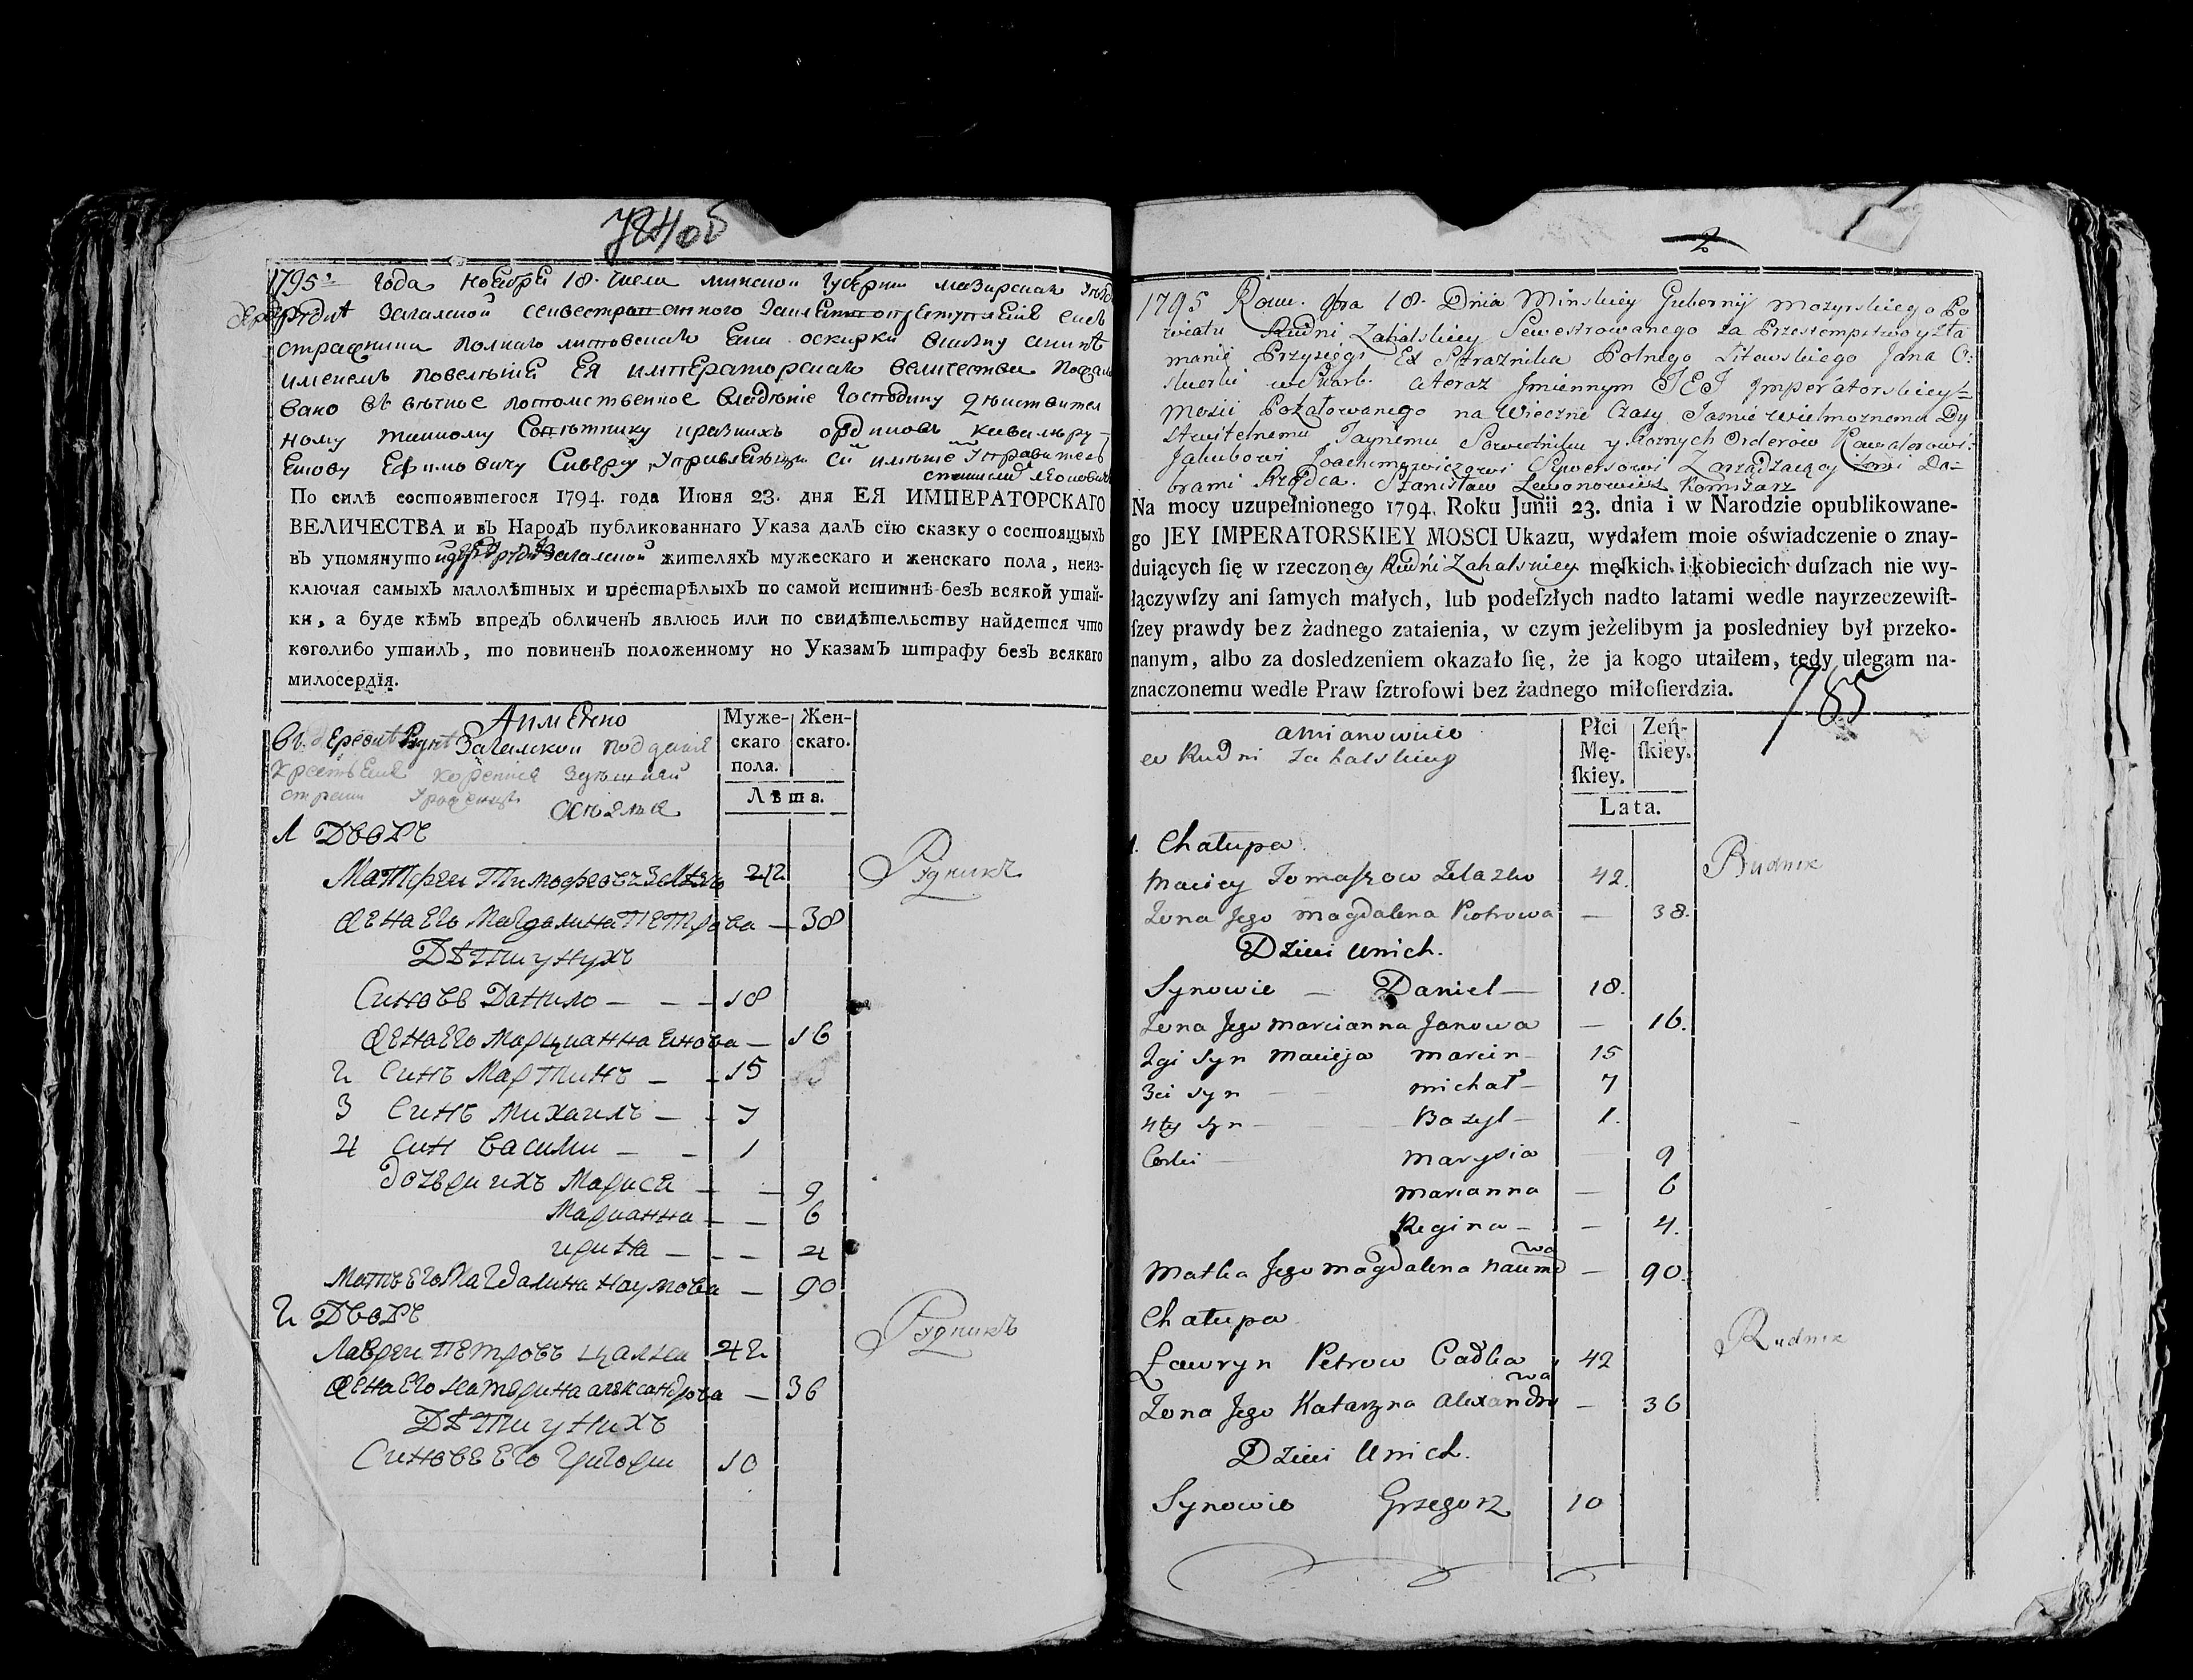 784 об
1795 года Ноября 18 числа минской Губерни мозырскаго
загалской
именемъ повелѣния ЕЯ императорскаго величества
вано въ вѣчное потомственное владѣние Господину
ному тайному и разныхъ ордновъ кавалеру
Ефимовичу Сиверсу
По силѣ состоявшегося 1794. года Июня 23. дня ЕЯ ИМПЕРАТОРСКАГО
ВЕЛИЧЕСТВА и въ Народъ публикованнаго Указа далъ сїю сказку о состоящыхъ
въ упомянутой загалской жителяхъ мужескаго и женскаго пола, неиз-
ключая самыхъ малолѣтных и престарѣлыхъ по самой истиннѣ безъ всякой утай-
ки, а буде кѣмъ впредъ обличенъ явлюсь или по свидѣтельству найдется что
коголибо утаилъ, то повиненъ положенному но Указамъ штрафу безъ всякаго
милосердїя.
Аимѣно
Муже-
скаго
пола.
Жен-
скаго.
Лѣта.
1 Дворъ
Матфеи Тимофеовъ 42 Рудникъ
жена его Магдалина Петрова — 38
Дѣти у нихъ
Синове Данило — — — 18
жена его Марцианна — 16
2 Синъ Мартинъ — — 15
3 Синъ Михаилъ — — 7
4 Син Васили — — 1
дочери ихъ Марися — — 9
Марианна — — 6
ирина — — — 4
Мать его Магдалина Наумова — 90
2 Дворъ
Лаврен Петровъ 42 Рудникъ
жена его Катерина александрова — 36
Дѣти у нихъ
Синове его Григори 10
2
1795 Roku. 18. Dnia Minskiey Gubernij Mozyrskiego Po
wiatu Rudni Zahalskiey Sewestrowanego za Przestempstwo y zła
manie Przysięgi Ex Strażnika Polnego Litewskiego Jana O:
skierki w Skarb. a teraz Jmiennym JEJ Jmperatorskiey
Mosci Pożałowanego na Wieczne Czasy Jasnie Wielmoznemu Dy
stwitelnemu Taynemu Sowietniku y Roznych Orderow Kawalerowi:
Jakubowi Joachimowiczowi Sywersowi Zarządzaiący Da=
brami Rządca. Stanisław Lewonowicz Komisarz
Na mocy uzupełnionego 1794. Roku Junii 23. dnia i w Narodzie opublikowane-
go JEY IMPERATORSKIEY MOSCI Ukazu, wydałem moie oświadczenie o znay-
duiących ſię w rzeczoney Rudni Zahalskiey męſkich i kobiecich duſzach nie wy-
łączywſzy ani ſamych małych, lub podeſzłych nadto latami wedle nayrzeczewiſt-
ſzey prawdy bez żadnego zataienia, w czym jeżelibym ja posledniey był przeko-
nanym, albo za dosledzeniem okazało ſię, że ja kogo utaiłem, tedy ulegam na-
znaczonemu wedle Praw ſztrofowi bez żadnego miłoſierdzia.
785
amianowicie
w Rudni Zahalskiey
Płci
Mę-
ſkiey.
Zeń-
ſkiey.
Lata.
1. Chałupa
Maciey Tomaszow Zelazko 42. Rudnik
Zona Jego Magdalena Piotrowa — 38.
Dzieci Unich.
Synowie — Daniel — 18.
Zona Jego Marcianna Janowa — 16.
2gi Syn Macieja Marcin — 15
3ci Syn — — Michał — 7
4ty Syn — — Bazyl — 1.
Corki — Marysia 9
Marianna — 6
Regina — — 4.
Matka Jego Magdalena Naumowa — 90.
Chałupa
Ławryn Petrow Cadko 42 Rudnik
Zona Jego Katarzyna Alexandrowa — 36
Dzieci Unich.
Synowie Grzegorz 10